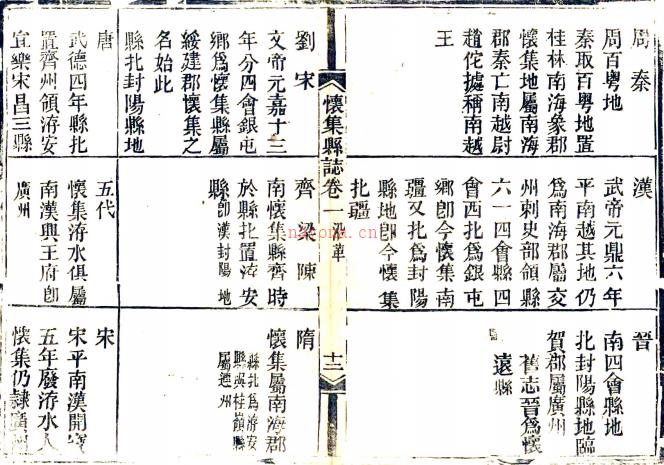 周秦
周百粵地
秦取百粵地置
桂林南海象郡
懷集地屬南海
郡秦亡南越尉
趙佗據稱南越
王
漢
武帝元鼎六年
平南越其地仍
爲南海郡屬交
州刺史部領縣
六一四會縣四
會西北爲銀屯
鄉卽今懷集南
疆又北爲封陽
縣地卽今懷集
北疆
晉
南四會縣地
北封陽縣地臨
賀郡屬廣州
舊志晉爲懷
遠縣
懷集縣誌卷一 沿革 十三
劉宋
文帝元嘉十三
年分四會銀屯
鄉爲懷集縣屬
綏建郡懷集之
名始此
縣北封陽縣地
齊梁陳
南懷集縣齊時
於縣北置洊安
縣卽漢封陽地
隋
懷集屬南海郡
縣北爲洊安
縣與桂嶺縣
屬連州
唐
武德四年縣北
置齊州領洊安
宜樂宋昌三縣
五代
懷集洊水俱屬
南漢興王府卽
廣州
宋
宋平南漢開寶
五年廢洊水入
懷集仍隸廣州